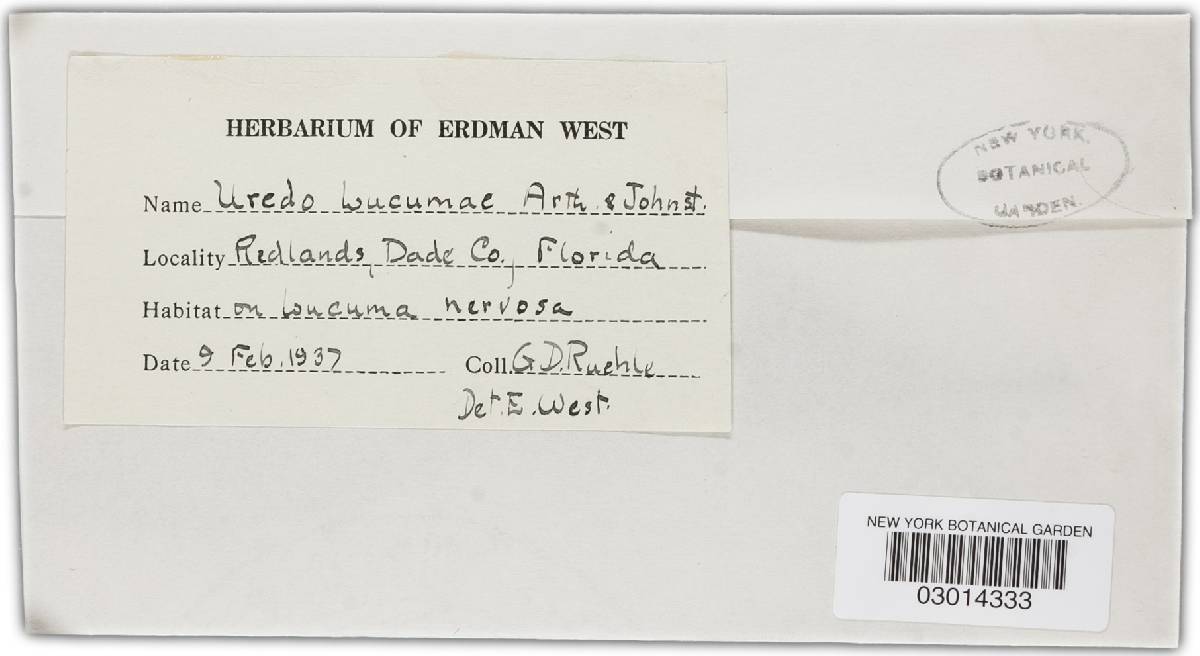 HERBARIUM OF ERDMAN WEST
Name Uredo Lucumae Arth. & Johnst.
Locality Redlands, Dade Co., Florida
Habitat on Lucuma nervosa
Date 9 Feb. 1937 Coll. G.D. Ruehle
Det. E. West.
NEW YORK
BOTANICAL
GARDEN.
NEW YORK BOTANICAL GARDEN
03014333